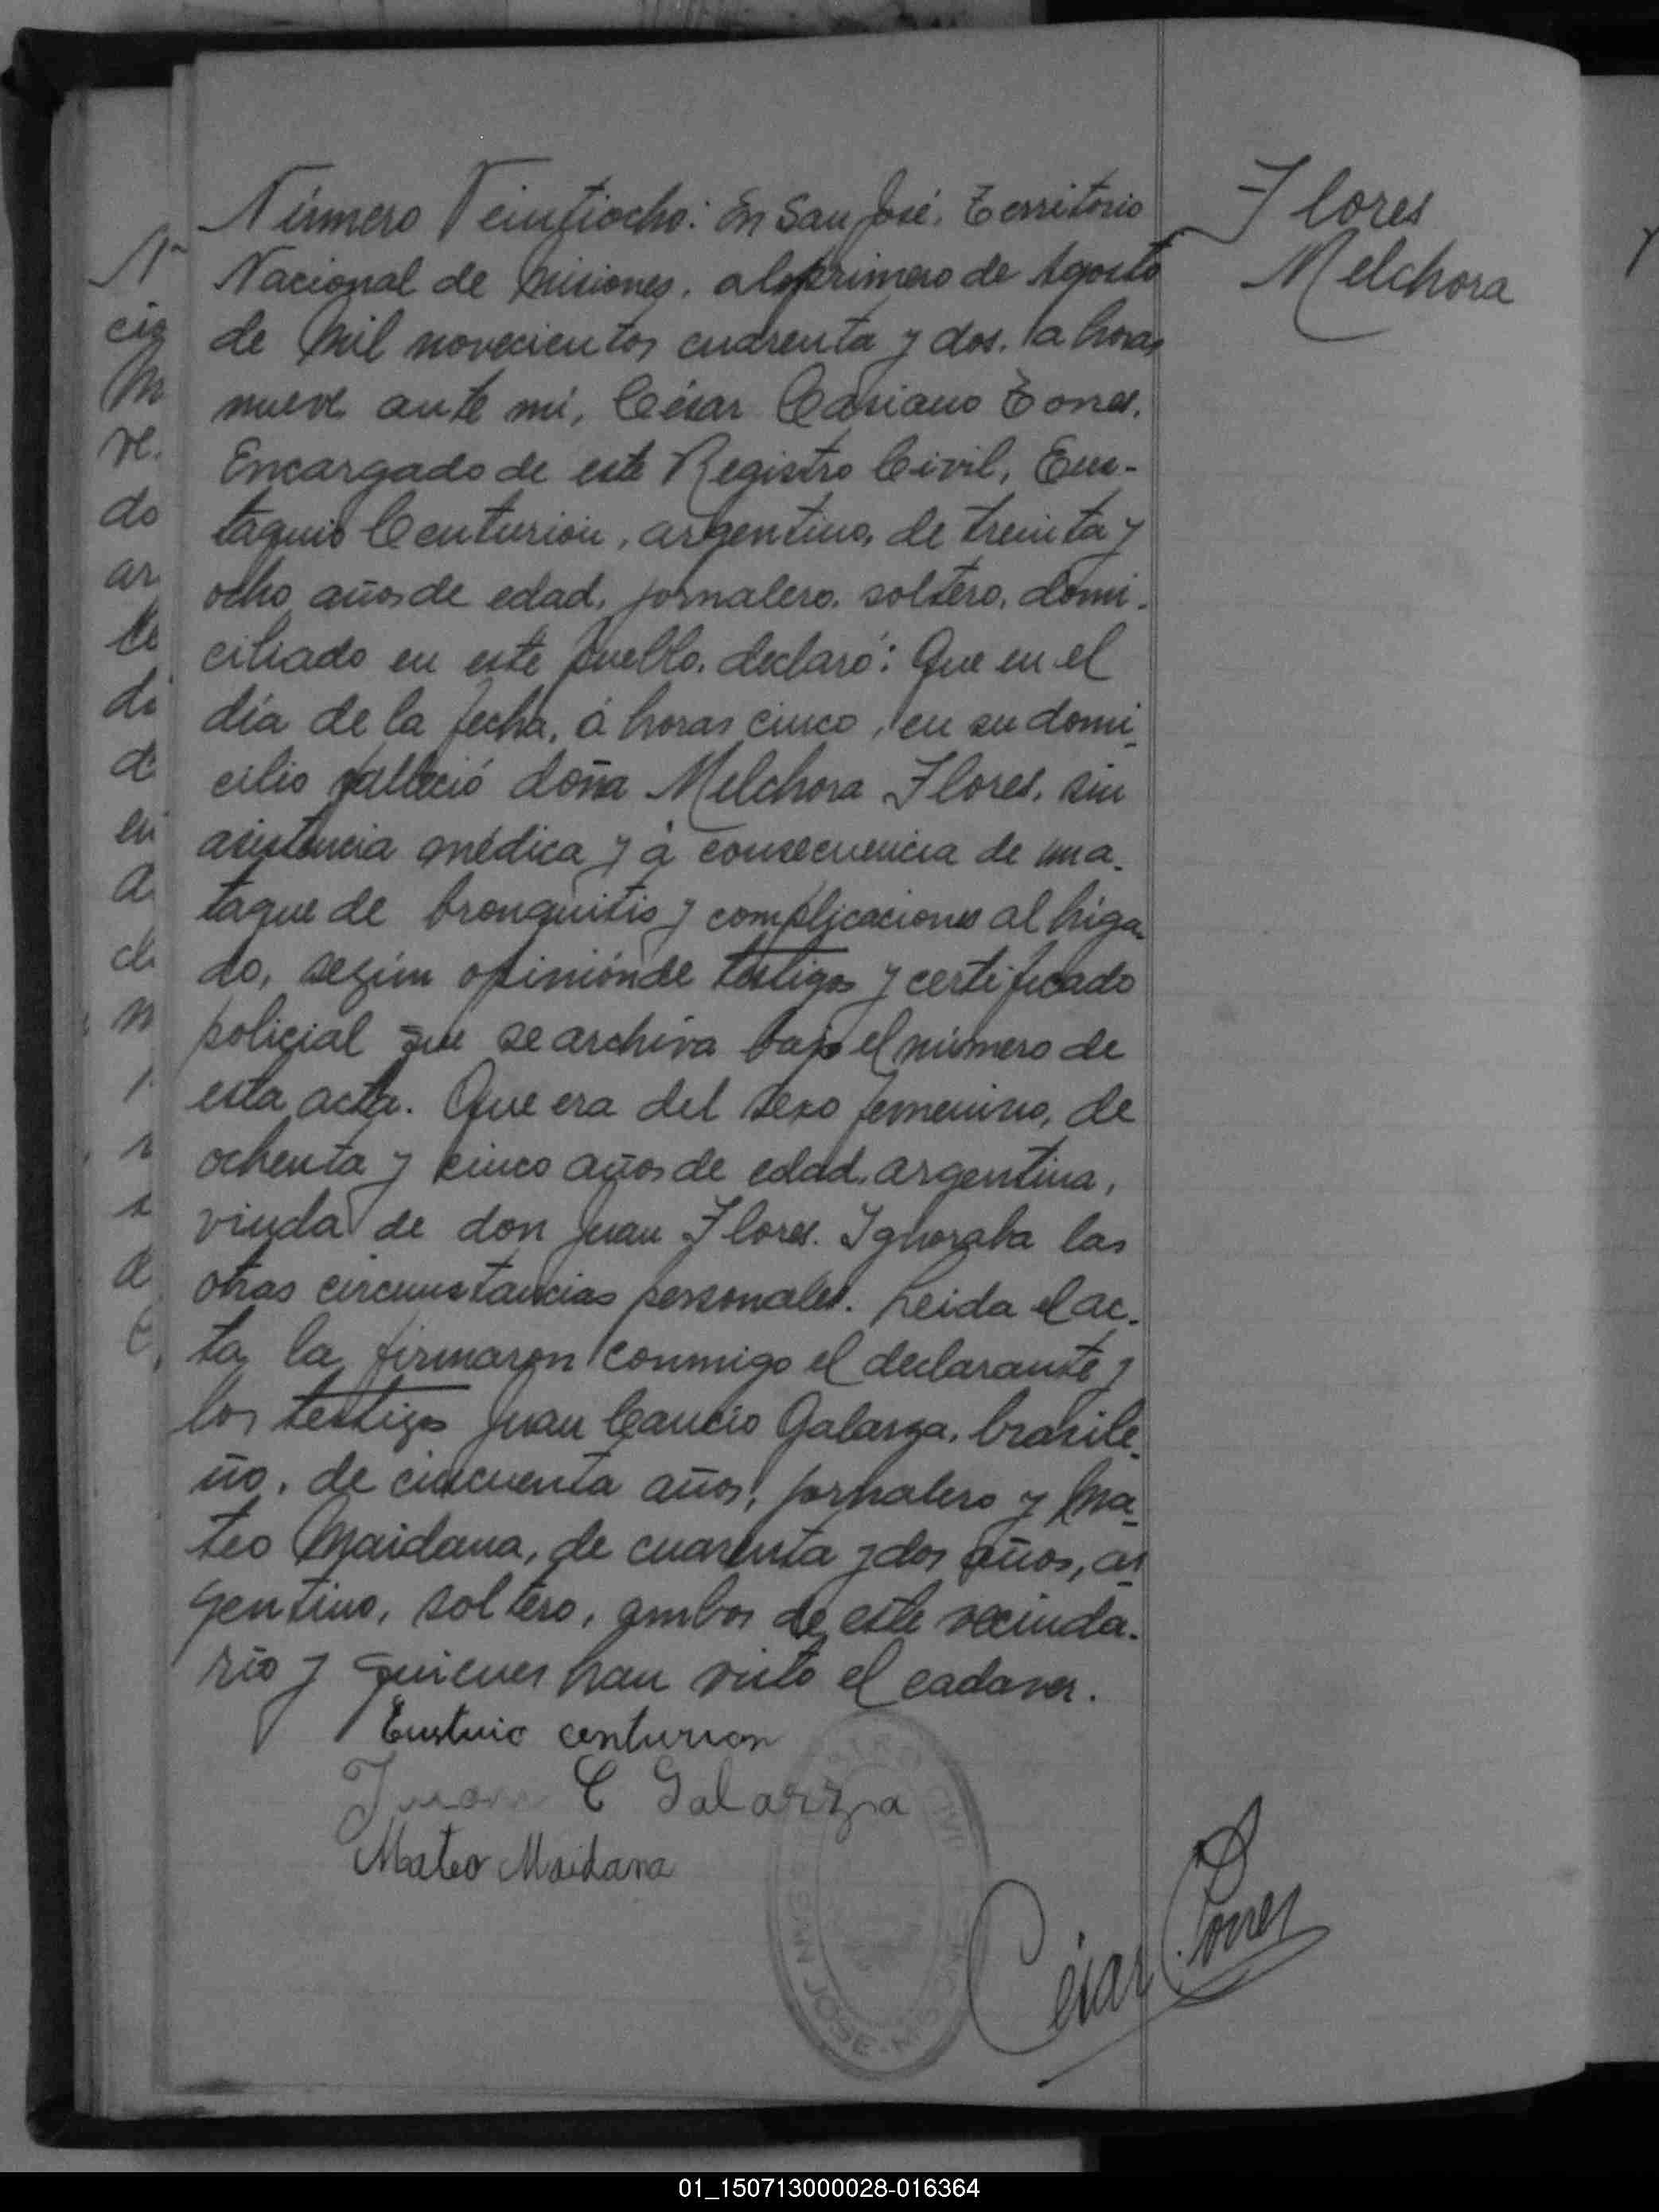 Número Veintiocho: En San José, Territorio
Nacional de Misiones, a primero de Agosto
de mil novecientos cuarenta y dos, a horas
nueve ante mí, César Casiano Torres,
Encargado de este Registro Civil, Eus-
taquio Centurión, argentino, de treinta y
ocho años de edad, jornalero, soltero, domi-
ciliado en este pueblo, declaró: Que en el
día de la fecha, á horas cinco, en su domi-
cilio falleció doña Melchora Flores, sin
asistencia médica y á consecuencia de un a-
taque de bronquitis y complicaciones al higa-
do, según opinión de testigos y certificado
policial que se archiva bajo el número de
esta acta. Que era del sexo femenino, de
ochenta y cinco años de edad, argentina,
viuda de don Juan Flores. Ignoraba las
otras circunstancias personales. Leida el ac-
ta la firmaron conmigo el declarante y
los testigos Juan Cancio Galarza, brasile-
ño, de cincuenta años, jornalero y Ma-
teo Maidana, de cuarenta y dos años, ar
gentino, soltero, ambos de este vecinda-
rio y quienes han visto el cadaver.
Flores
Melchora
Eustuio centurion
Juan C Galarza
Mateo Maidana
César C. Torres
SAN JOSE
01_150713000028-016364